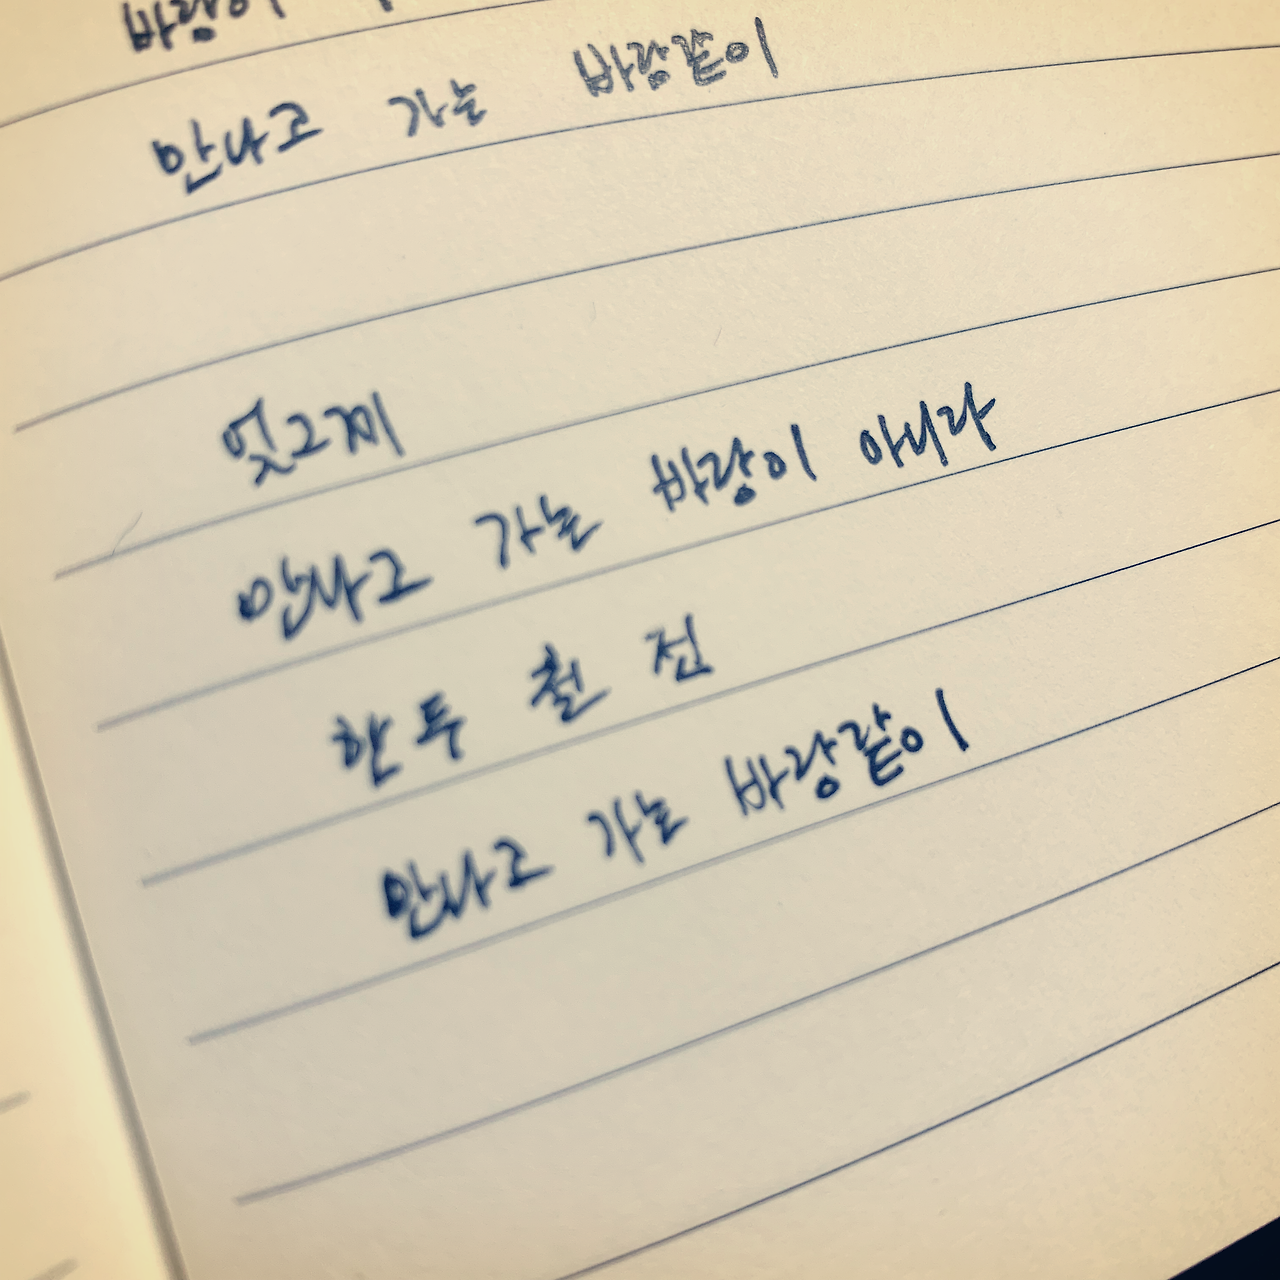 바람이
만나고 가는 바람같이
엊그제
만나고 가는 바람이 아니라
한두 철 전
만나고 가는 바람같이